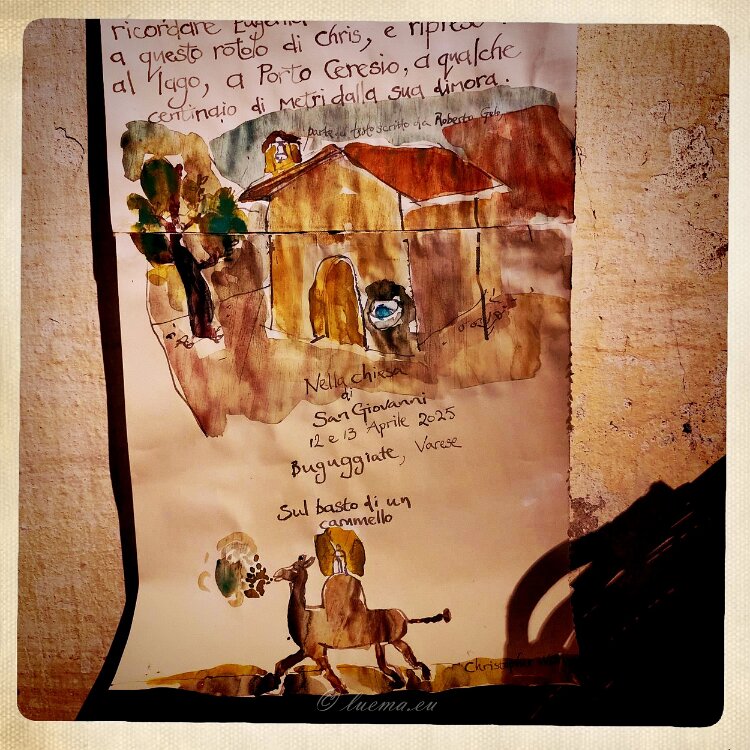 ricordare Eugenia
a questo rotolo di Chris, e
al lago, a Porto Ceresio, a qualche
centinaio di metri dalla sua dimora.
testo scritto da Roberto
Nella chiesa
di
San Giovanni
12 e 13 Aprile 2025
Buguggiate, Varese
Sul basto di un
cammello
© luema.eu